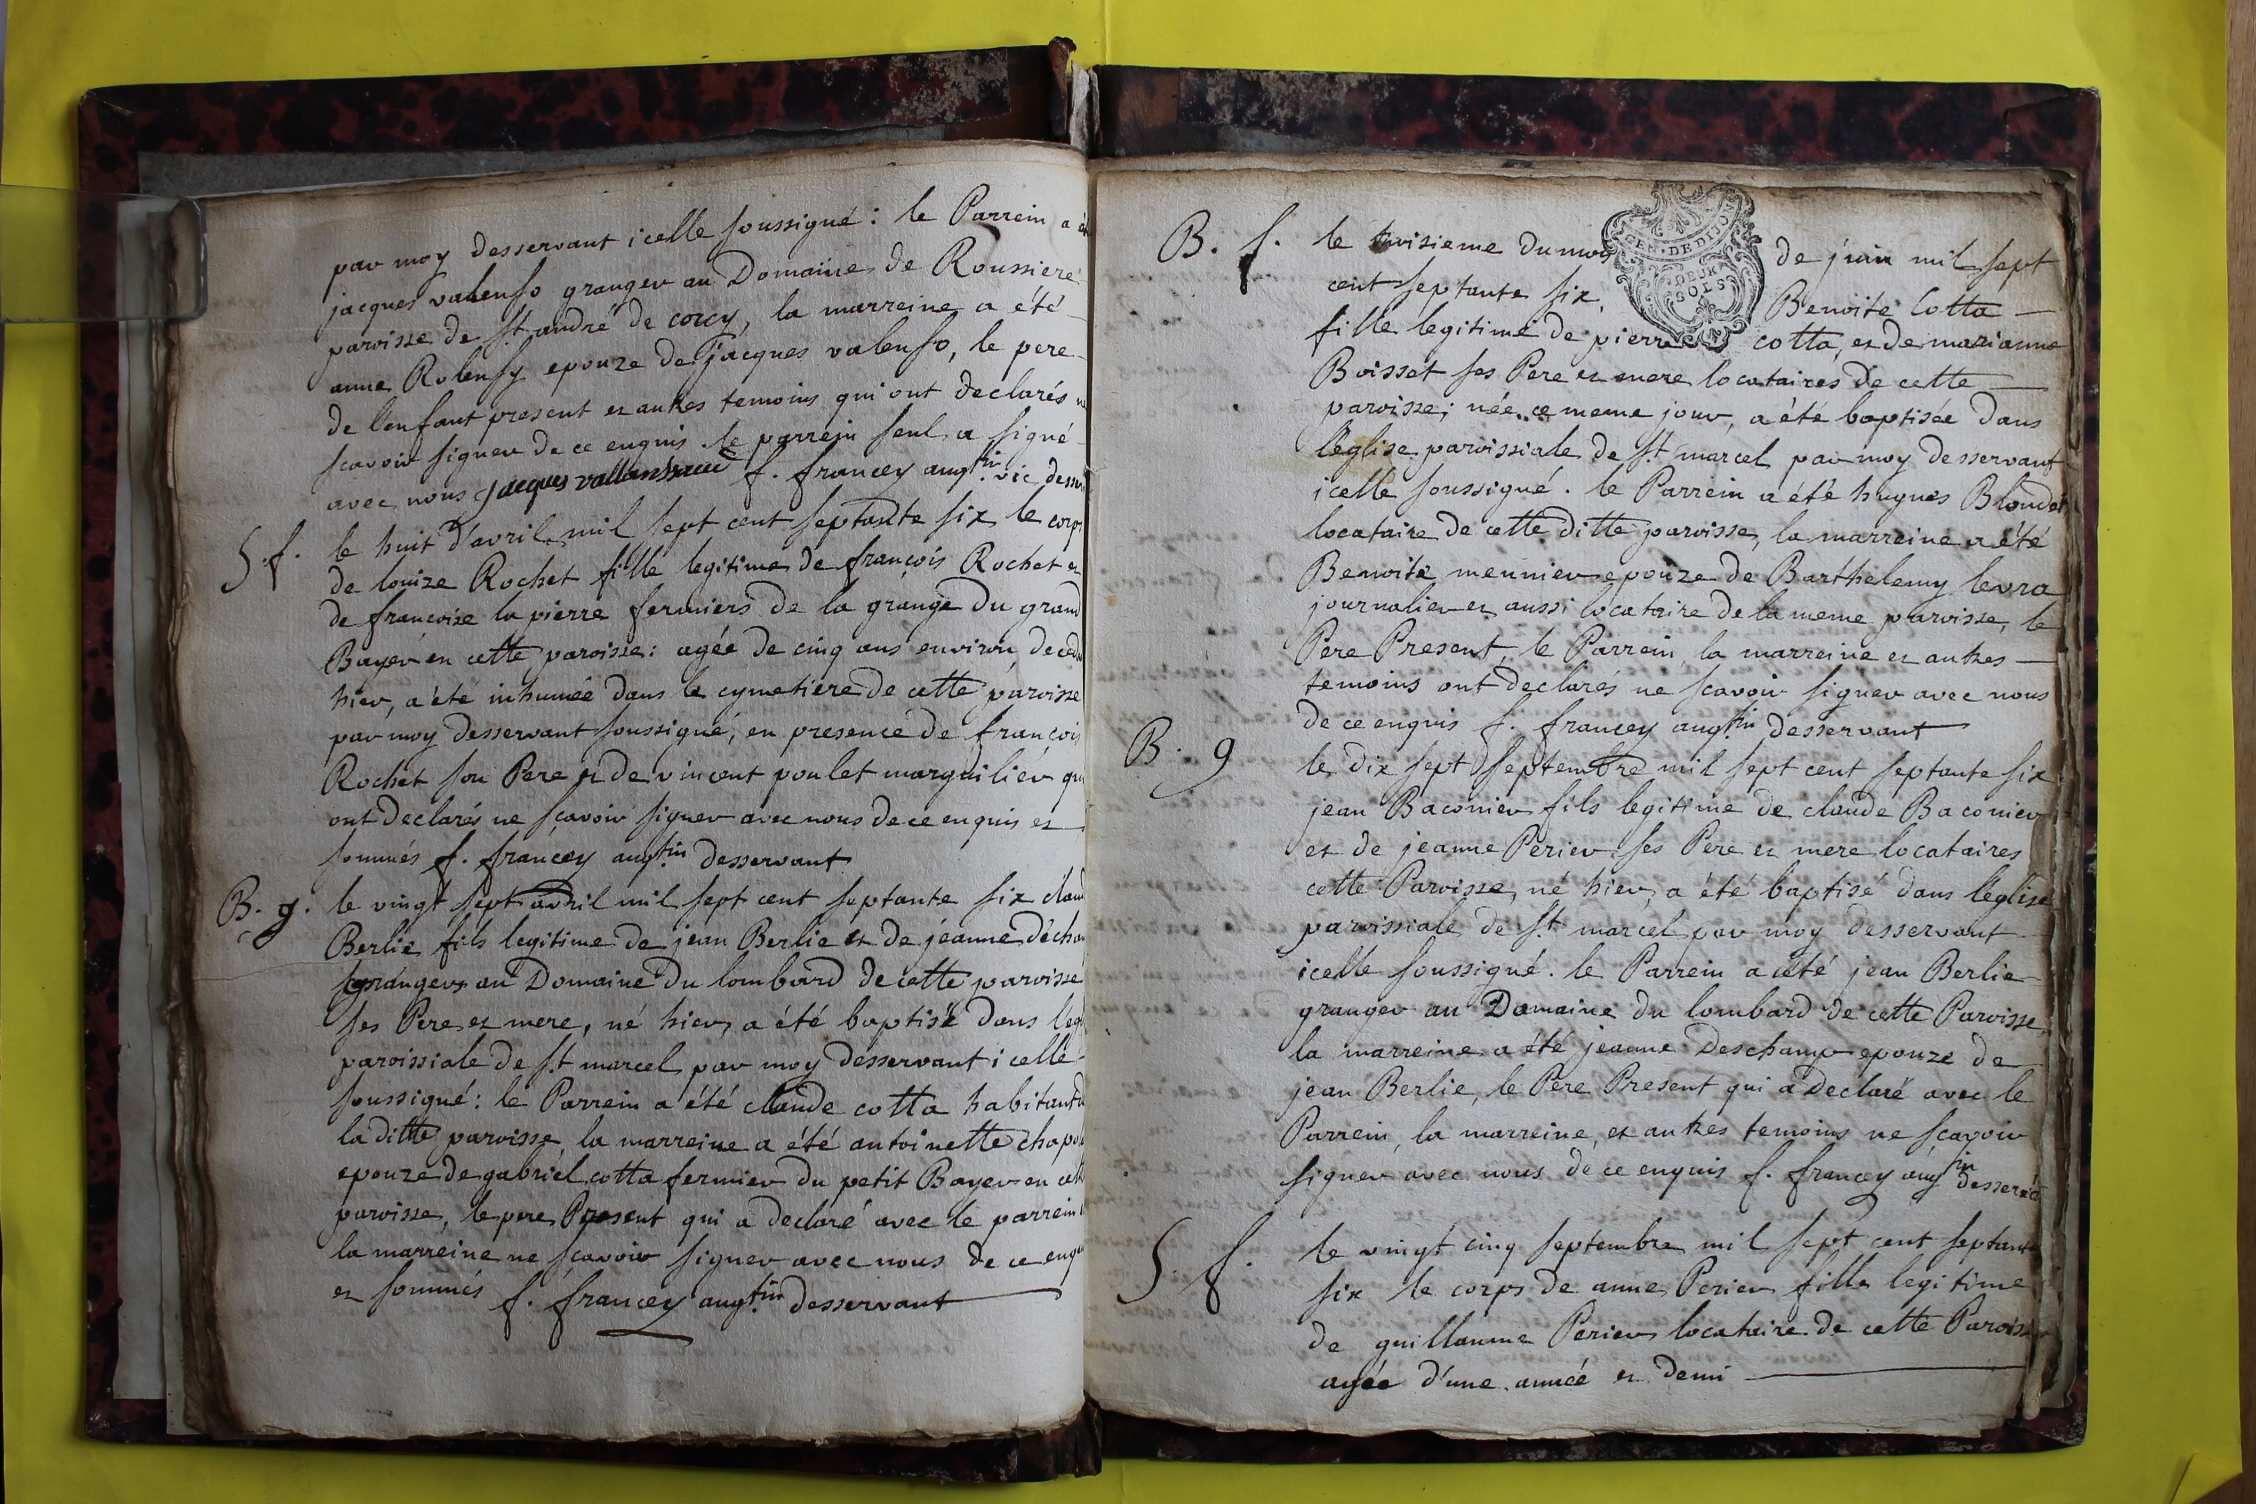 par moy desservant icelle soussigné : le Parrein a été
jacques valenso granger au Domaine de Roussiere
paroisse de st. andré de corcy, la marreine a été
anne Rolensy epouze de jacques valenso, le pere
de l'enfant present et autres temoins qui ont declarés ne
scavoir signer de ce enquis. le parrein seul a signé
avec nous jacques f. francey augtin. vic desser
S. f. le huit d'avril mil sept cent septante six le corps
de louize Rochet fille legitime de françois Rochet et
de francoise la pierre fermiers de la grange du grand
Bayer en cette paroisse : agée de cinq ans environ, decedé
hier, a été inhumée dans le cymetiere de cette paroisse
par moy desservant soussigné, en presence de françois
Rochet son Pere et de vincent poulet marguilier qui
ont declarés ne scavoir signer avec nous de ce enquis et
sommés f. francey augtin desservant
B. g. le vingt sept avril mil sept cent septante six claude
Berlie fils legitime de jean Berlie et de jeanne decham
grangers au Domaine du lombard de cette paroisse
ses Pere et mere, né hier, a été baptisé dans l'egl
paroissiale de st. marcel par moy desservant icelle
soussigné : le Parrein a été claude cotta habitant de
la ditte paroisse, la marreine a été antoinette chapo
epouze de gabriel cotta fermier du petit Bayer en cette
paroisse, le pere Present qui a declaré avec le parrein
la marreine ne scavoir signer avec nous de ce enqui
et sommés f. francey augtin desservant
GEN. DE DIJON
DEUX
SOLS
B. f. le troisieme du mois de juin mil sept
cent septante six, Benoite Cotta
fille legitime de pierre cotta, et de marianne
Boisset ses Pere et mere locataires de cette
paroisse ; née ce meme jour, a été baptisée dans
l'eglise paroissiale de st. marcel par moy desservant
icelle soussigné. le Parrein a été hugues Blondet
locataire de cette ditte paroisse, la marreine a été
Benoite meunier epouze de Barthelemy levra
journalier et aussi locataire de la meme paroisse, le
Pere Present, le Parrein, la marreine et autres
temoins ont declarés ne scavoir signer avec nous
de ce enquis f. francey augtin desservant
B. g le dix sept septembre mil sept cent septante six
jean Baconier fils legitime de claude Baconier
et de jeanne Perier ses Pere et mere locataires
cette Paroisse, né hier, a été baptisé dans l'eglise
paroissiale de st. marcel par moy desservant
icelle soussigné. le Parrein a été jean Berlie
granger au Domaine du lombard de cette Paroisse,
la marreine a été jeanne Deschamp epouze de
jean Berlie, le Pere Present qui a declaré avec le
Parrein, la marreine, et autres temoins ne scavoir
signer avec nous de ce enquis f. francey augtin desser
S. f. le vingt cinq septembre mil sept cent septante
six le corps de anne Perier fille legitime
de guillaume Perier locataire de cette Paroisse
agée d'une année et demi